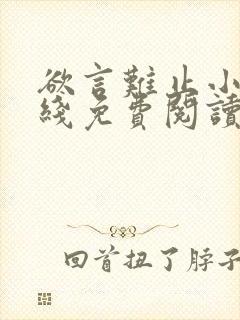 欲言難止小
綫免費閱讀
回首扭了脖子